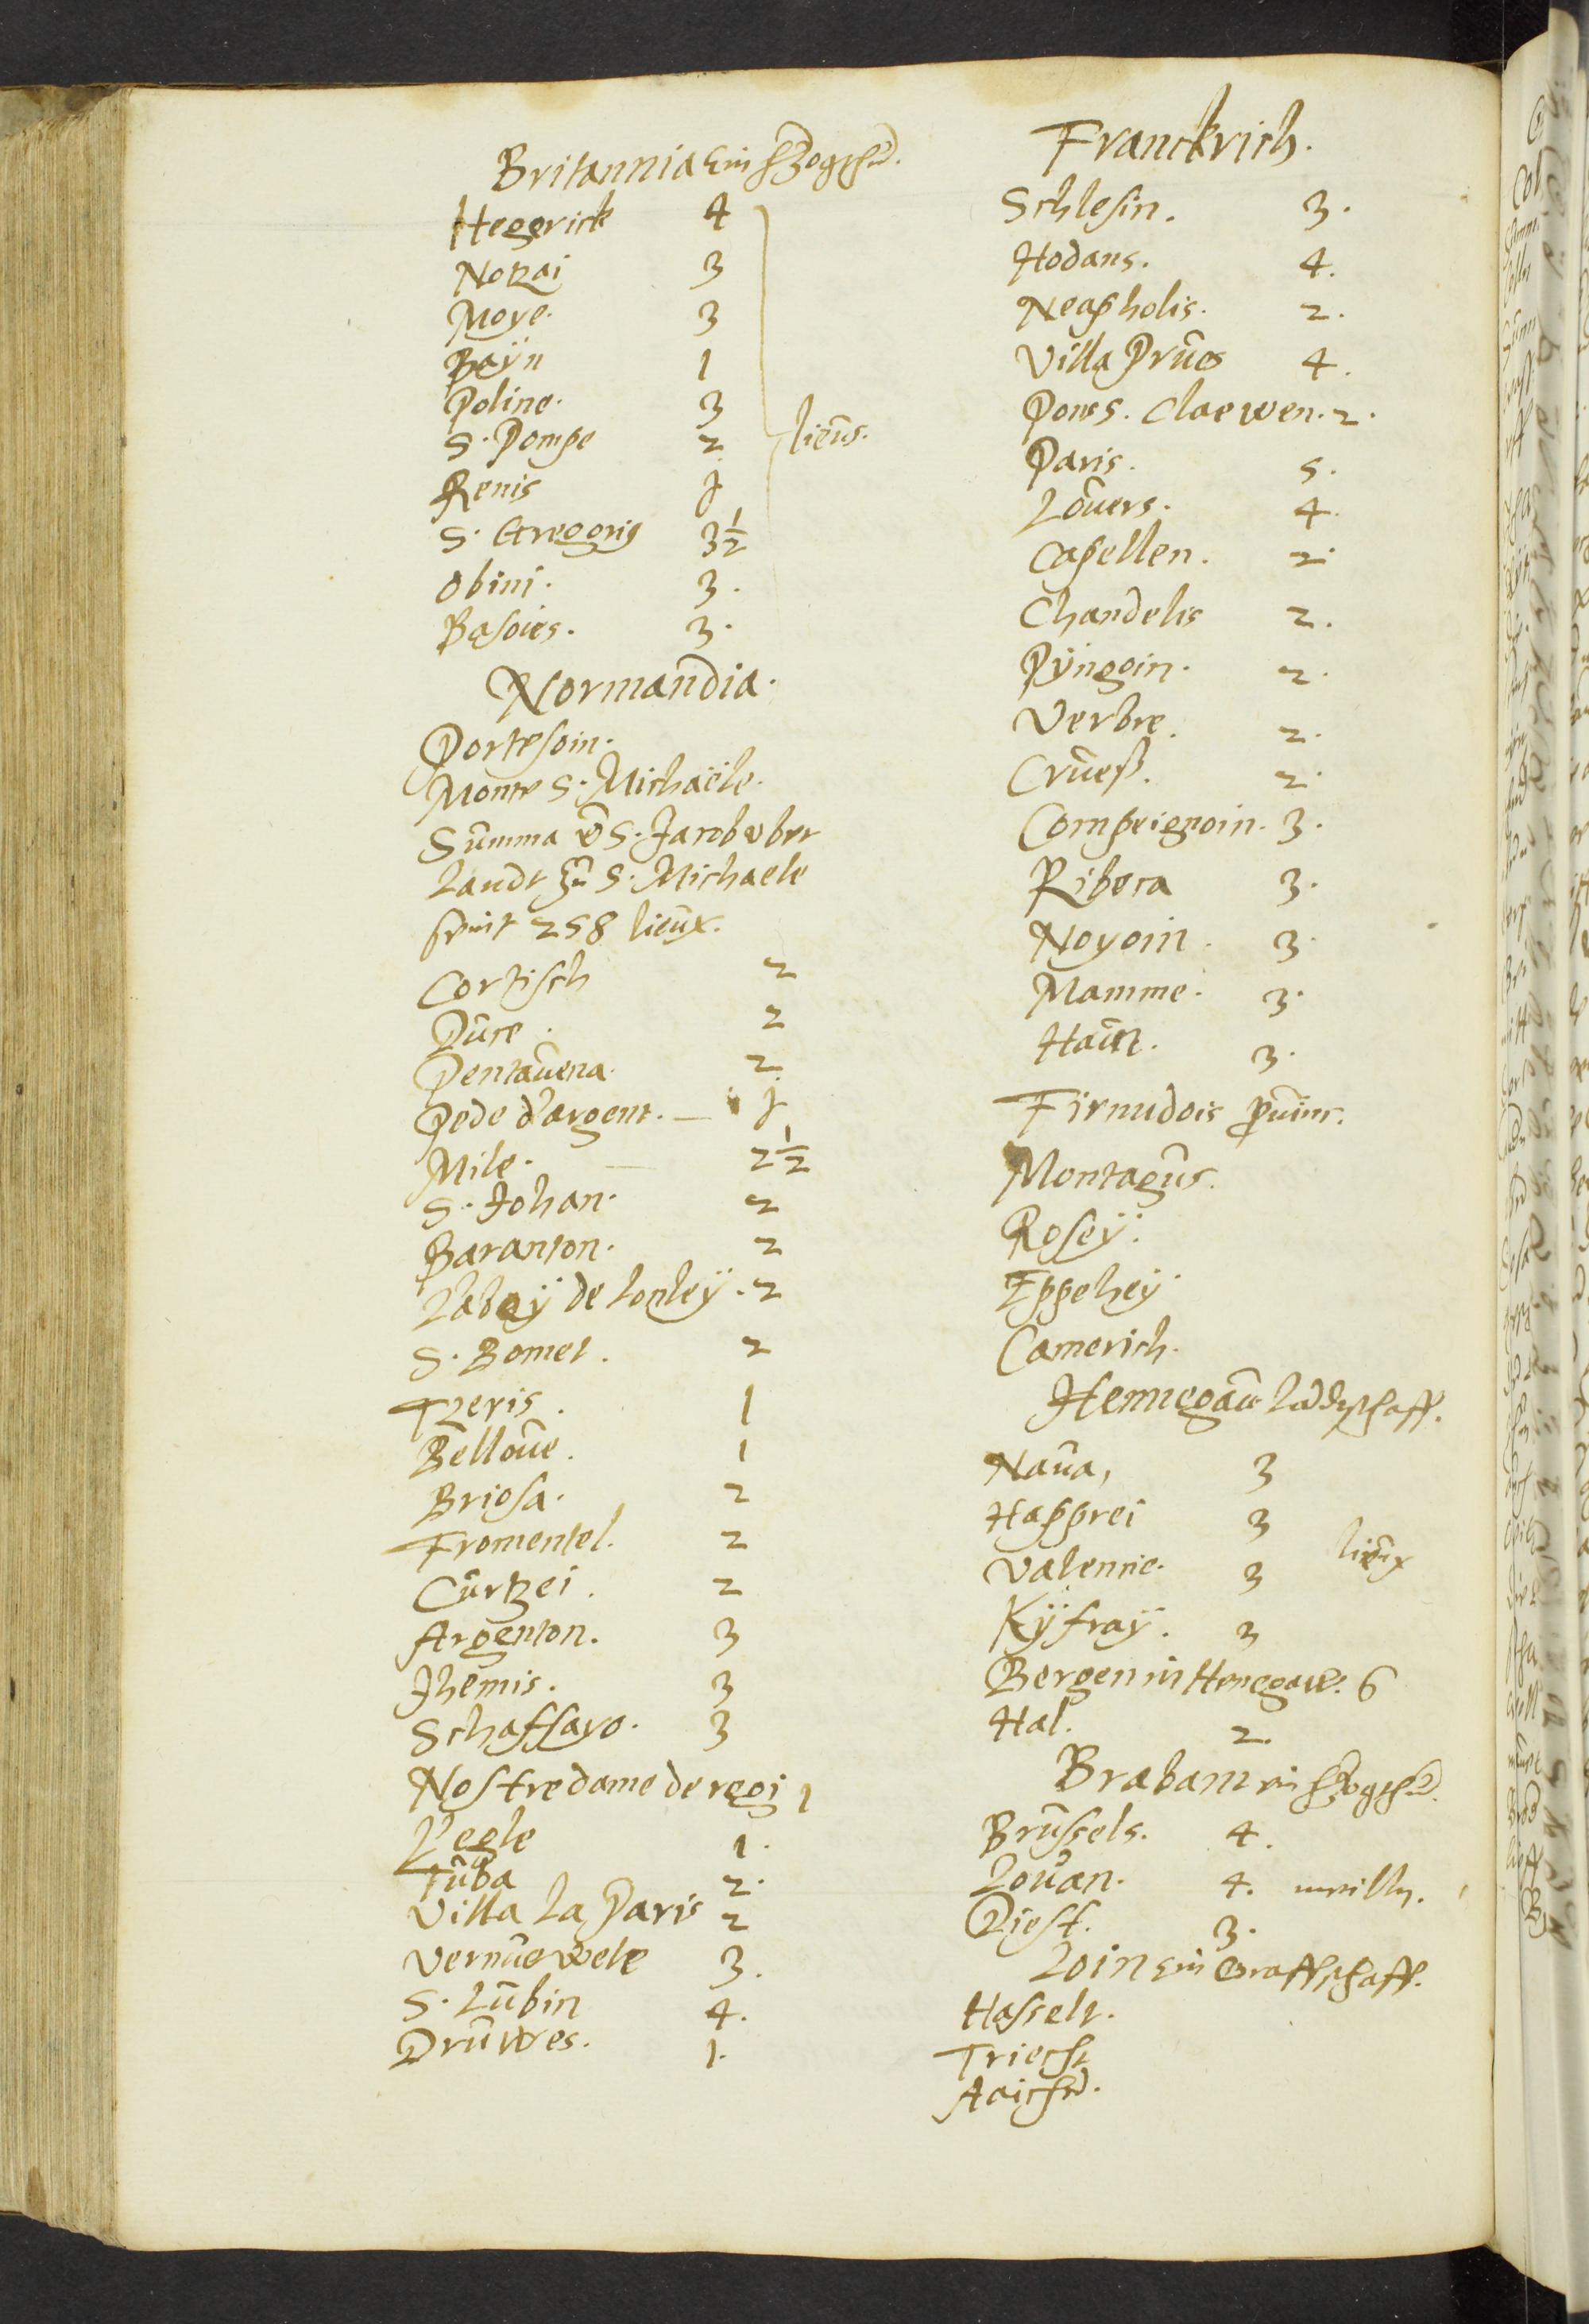 Britannia Ein Hzogthu͂.
Heggrick 4
Notzai 3
Moye. 3
Baÿn 1
Poline. 3
S. Pompe 2 lieu͂s.
Renis j
S. Gregorig 3½
Obini. 3.
Basoies. 3.
Normandia.
Portesoin.
Monte S. Michaële.
Sum̃a vo͂ S. Jacob vber
Landt zu͂ S. Michaele
seint 258 lieu͂x.
Cortisch 2
Du͂re. 2
Pentau͂ena. 2
Pede d'argent. — j
Mile. 2½
S. Johan. 2
Baranton. 2
L'abaÿ de Lonleÿ. 2
S. Bomet. 2
Tzeris. 1
Bellou͂e. 1
Briosa. 2
Fromentel. 2
Cu͂rtzei. 2
Argenton. 3
Jhemis. 3
Schaffayo. 3
Nostre dame de regi 1
L'egle 1.
Tu͂ba 2.
Villa La Paris 2
Vernu͂ewele 3.
S. Lu͂bin 4.
Dru͂wes. 1.
Franckrich.
Schlesin. 3.
Hodans. 4.
Neapholis. 2.
Villa Pru͂es 4.
Pons S. Claewen. 2.
Paris. 5.
Lou͂ers. 4.
Capellen. 2.
Chandelis 2.
Pÿngoin. 2.
Verbre. 2.
Cru͂eß. 2.
Compeignoin. 3.
Ribera 3.
Noyoin. 3.
Mamme. 3.
Hau͂n. 3.
Firnudois prou͂inc.
Montagu͂s.
Roseÿ.
Eppeheÿ
Camerich.
Hennegau͂ Landtschafft.
Nau͂a, 3
Happrei 3
Valennie. 3 lieu͂x
Kÿfraÿ. 3
Bergen in Henegaw. 6
Hal. 2.
Brabant ein Hzogthu͂.
Bru͂ssels. 4.
Lou͂an. 4. meilln.
Diest. 3.
Loin ein Graffschafft.
Hasselt.
Triecht
Aaich.